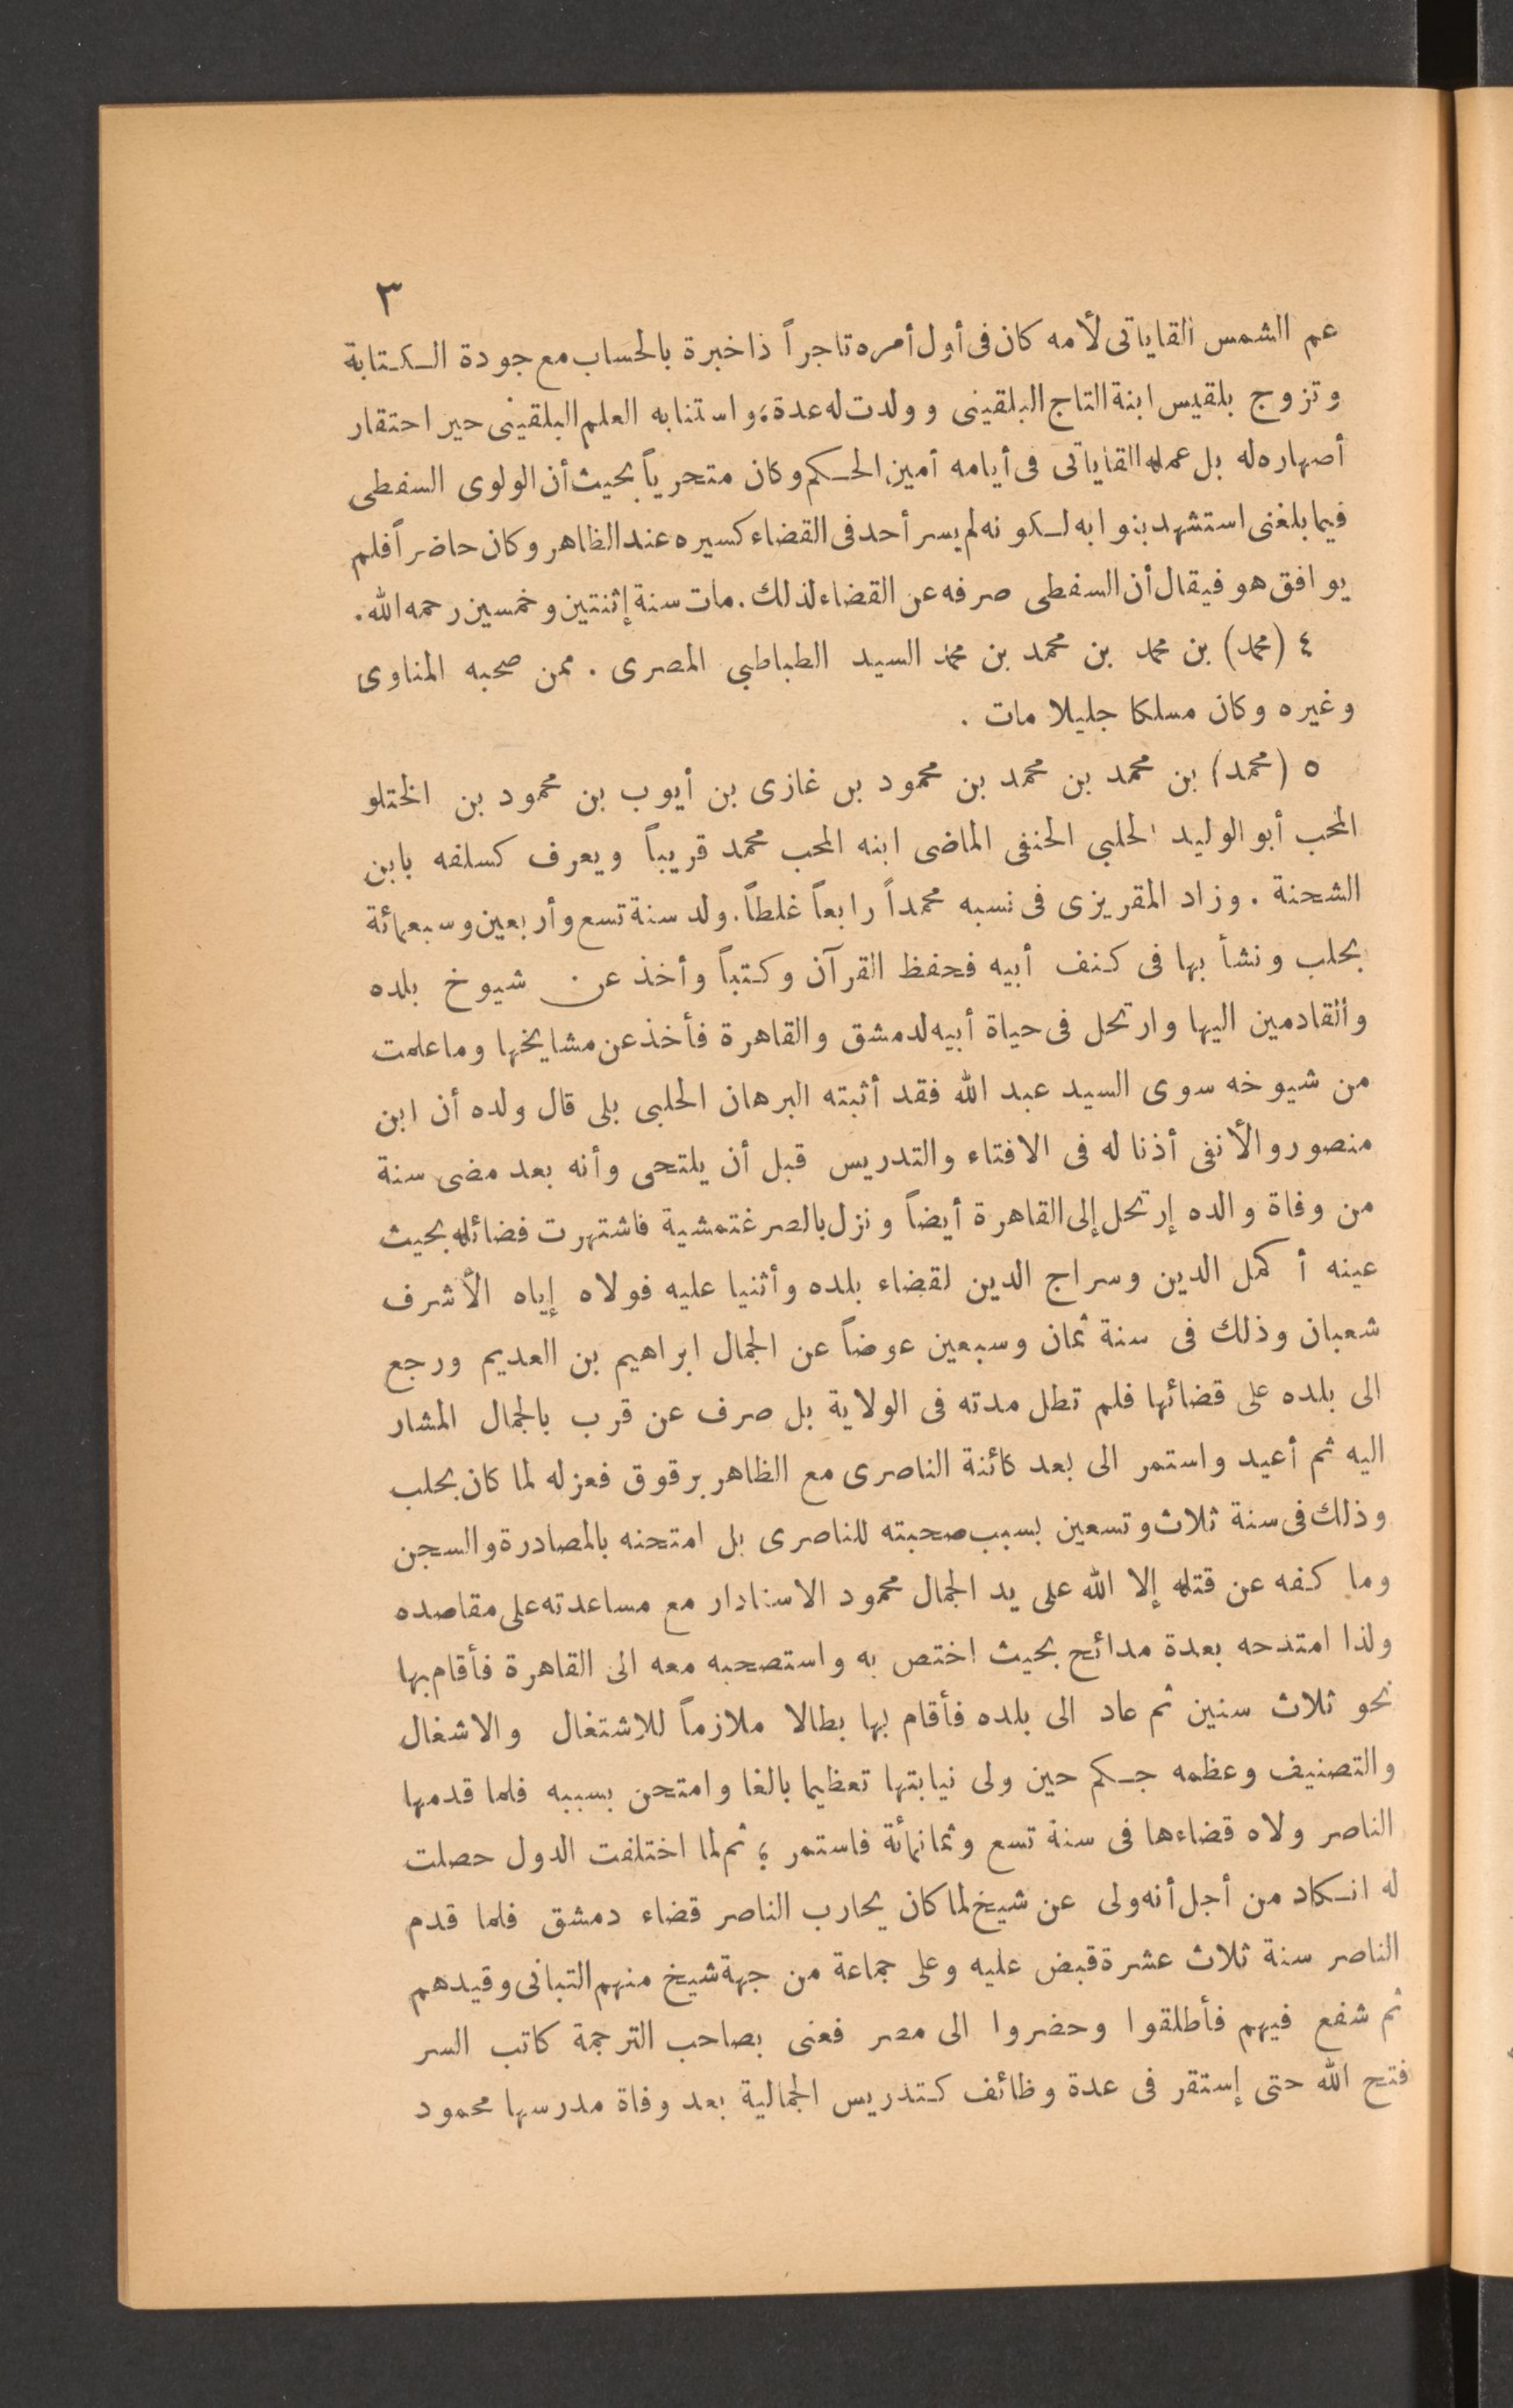 ٣
عم الشمس القاياتى لأمه كان فى أول أمره تاجراً ذا خبرة بالحساب مع جودة الكتابة
وتزوج بلقيس ابنة التاج البلقينى وولدت له عدة، واستنابه العلم البلقينى حير احتقار
أصهاره له بل عمله القاياتى فى أيامه أمين الحكم وكان متحرياً بحيث أن الولوى السفطى
فيما بلغنى استشهد بنوابه لكونه لم يسر أحد فى القضاء كسيره عند الظاهر وكان حاضراً فلم
يوافق هو فيقال أن السفطى صرفه عن القضاء لذلك. مات سنة إثنتين وخمسين رحمه الله.
٤ (محمد) بن محمد بن محمد بن محمد السيد الطباطبي المصرى. ممن صحبه المناوى
وغيره وكان مسلكا جليلا مات.
٥ (محمد) بن محمد بن محمد بن محمود بن غازى بن أيوب بن محمود بن الختلو
المحب أبو الوليد الحلبي الحنفى الماضى ابنه المحب محمد قريباً ويعرف كسلفه بابن
الشحنة. وزاد المقريزى فى نسبه محمداً رابعاً غلطاً. ولد سنة تسع وأربعين وسبعمائة
بحلب ونشأ بها فى كنف أبيه فحفظ القرآن وكتباً وأخذ عن شيوخ بلده
والقادمين اليها وارتحل فى حياة أبيه لدمشق والقاهرة فأخذ عن مشايخها وما علمت
من شيوخه سوى السيد عبد الله فقد أثبته البرهان الحلبى بلى قال ولده أن ابن
منصور والأنفى أذنا له فى الافتاء والتدريس قبل أن يلتحى وأنه بعد مضى سنة
من وفاة والده إرتحل إلى القاهرة أيضاً ونزل بالصرغتمشية فاشتهرت فضائله بحيث
عينه أكمل الدين وسراج الدين لقضاء بلده وأثنيا عليه فولاه إياه الأشرف
شعبان وذلك فى سنة ثمان وسبعين عوضاً عن الجمال ابراهيم بن العديم ورجع
الى بلده على قضائها فلم تطل مدته فى الولاية بل صرف عن قرب بالجمال المشار
اليه ثم أعيد واستمر الى بعد كائنة الناصرى مع الظاهر برقوق فعزله لما كان بحلب
وذلك فى سنة ثلاث وتسعين بسبب صحبته للناصرى بل امتحنه بالمصادرة والسجن
وما كفه عن قتله إلا الله على يد الجمال محمود الاستادار مع مساعدته على مقاصده
ولذا امتدحه بعدة مدائح بحيث اختص به واستصحبه معه الى القاهرة فأقام بها
نحو ثلاث سنين ثم عاد الى بلده فأقام بها بطالا ملازماً للاشتغال والاشغال
والتصنيف وعظمه جكم حين ولى نيابتها تعظيما بالغا وامتحن بسببه فلما قدمها
الناصر ولاه قضاءها فى سنة تسع وثمانمائة فاستمر؛ ثم لما اختلفت الدول حصلت
له انكاد من أجل أنه ولى عن شيخ لما كان يحارب الناصر قضاء دمشق فلما قدم
الناصر سنة ثلاث عشرة قبض عليه وعلى جماعة من جهة شيخ منهم التبانى وقيدهم
ثم شفع فيهم فأطلقوا وحضروا الى مصر فعنى بصاحب الترجمة كاتب السر
فتح الله حتى إستقر فى عدة وظائف كتدريس الجمالية بعد وفاة مدرسها محمود